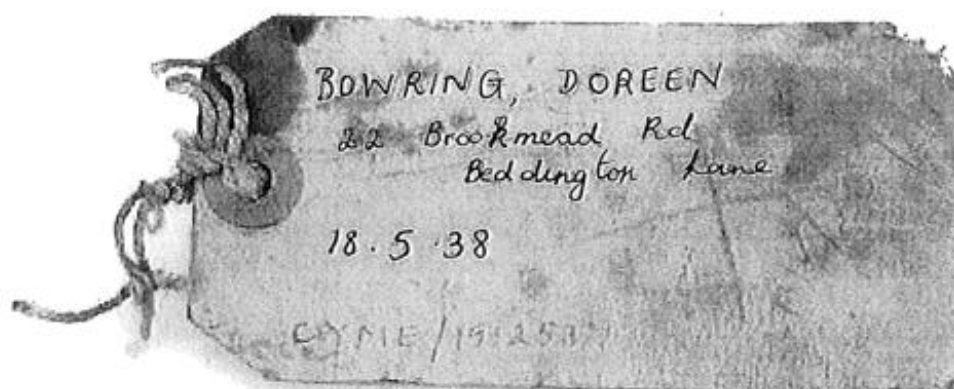 BOWRING, DOREEN
22 Brookmead Rd
Beddington Lane
18.5.38